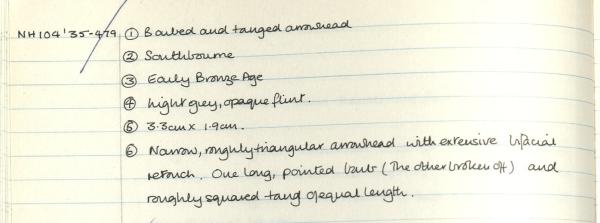 NH104'35-479 ① Barbed and tanged arrowhead
② Southbourne
③ Early Bronze Age
④ Light grey, opaque flint.
⑤ 3.3cm x 1.9cm.
⑥ Narrow, roughly triangular arrowhead with extensive bifacial
retouch. One long, pointed barb (the other broken off) and
roughly squared tang of equal length.